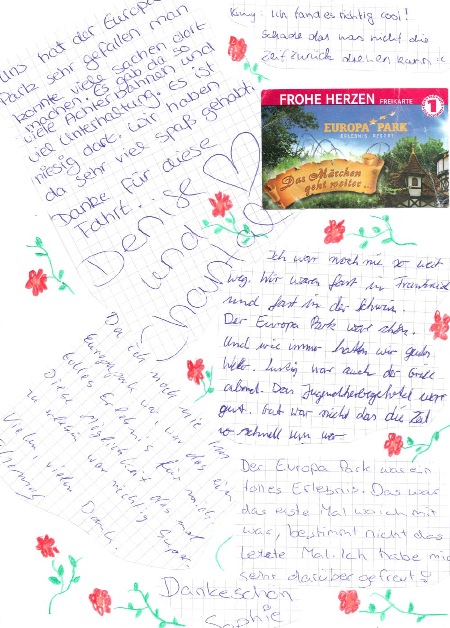 Uns hat der Europa
Park sehr gefallen man
konnte viele sachen dort
machen. Es gab da so
viele Achterbahnen und
viel Unterhaltung. es ist
riesig dort. wir haben
da sehr viel spaß gehabt.
Danke für diese
Fahrt..
Denise
und
Chantal
Ich fand es richtig cool!
Schade das man nicht die
Zeit zurück drehen kann
FROHE HERZEN FREIKARTE 1
EUROPA PARK
ERLEBNIS-RESORT
Das Märchen
geht weiter...
Ich war noch nie so weit
weg. Wir waren fast in Frankreich
und fast in der Schweiz.
Der Europa Park war schön.
Und wie immer hatten wir gutes
Wetter. Lustig war auch der Grill
abend. Das Jugendherbergshotel war
gut. war nicht das die Zeit
so schnell um war
Da ich noch nie im
Europapark war, war das ein
tolles Erlebnis für mich.
Diese Möglichkeit das mal
zu erleben war richtig super.
Vielen, vielen Dank.
Der Europa Park war ein
tolles Erlebnis. Das war
das erste Mal wo ich mit
war, bestimmt nicht das
letzte Mal. Ich habe mich
sehr darüber gefreut!
Dankeschön
Sophie